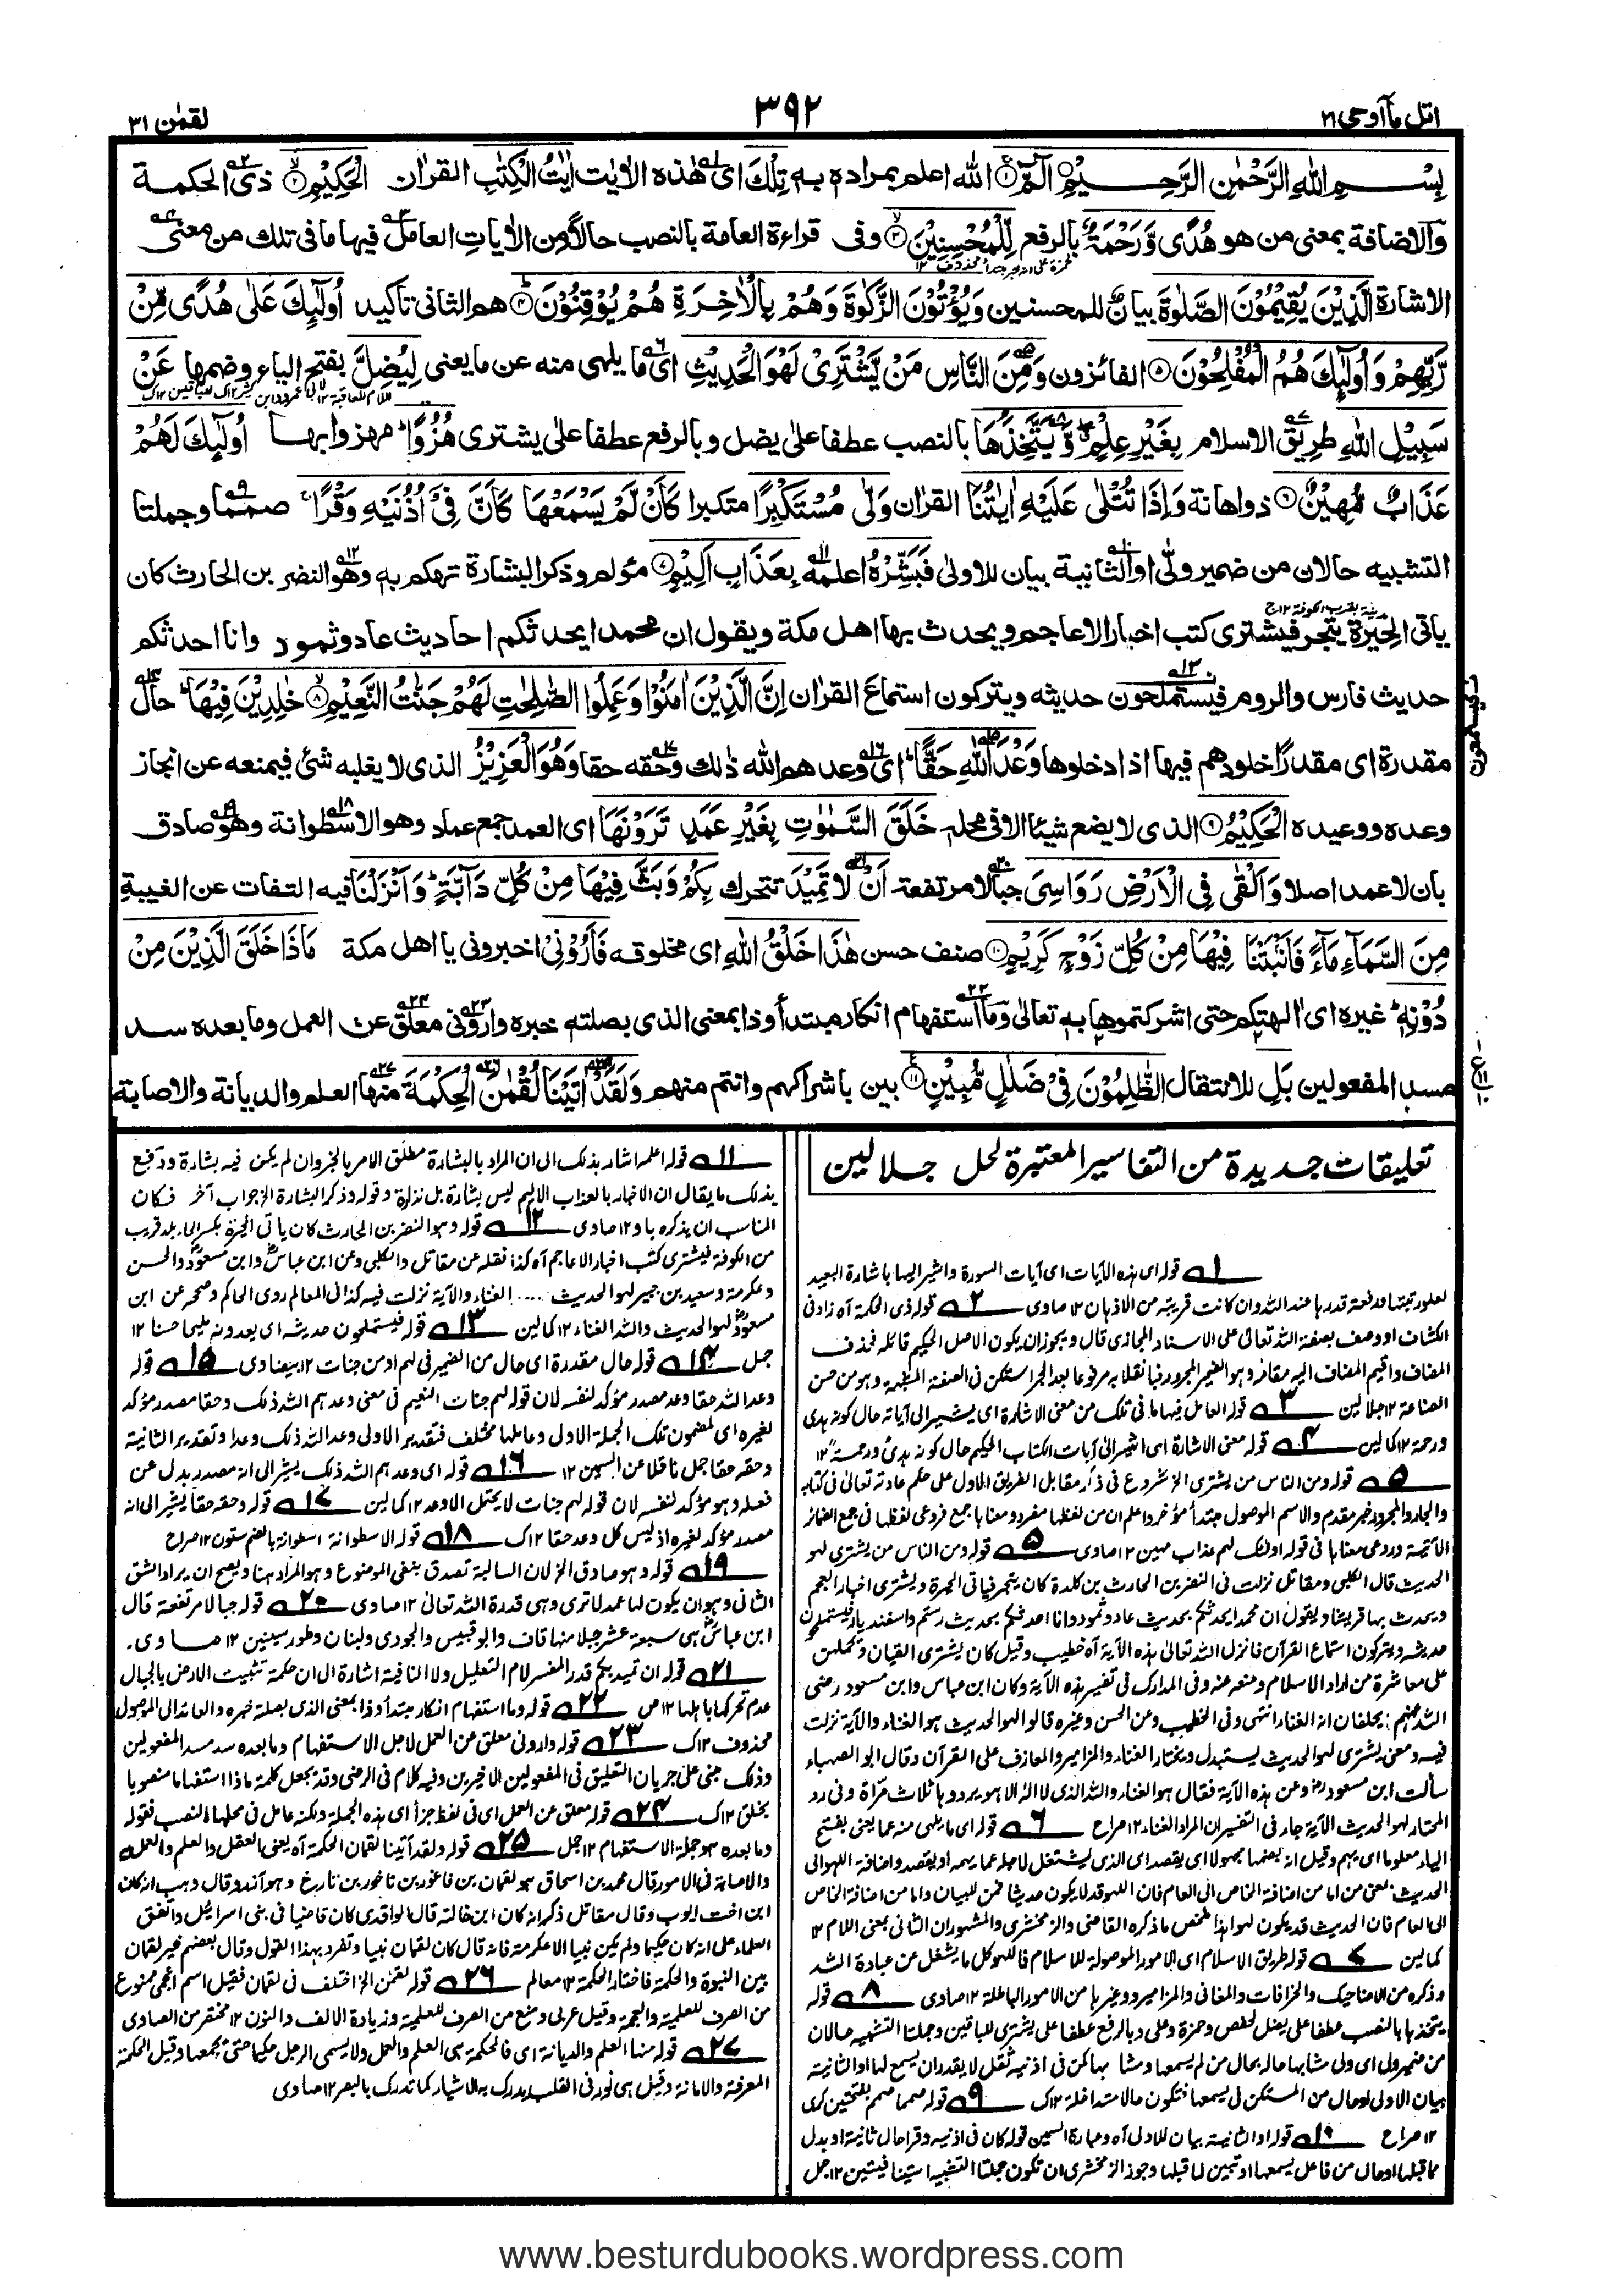 اتل ماۤ اوحی ٢١
٣٩٢
لقمٰن ٣١
بِسْمِ اللّٰهِ الرَّحْمٰنِ الرَّحِيْمِ الٓمّٓ ۝١ الله اعلم بمراده به تِلْكَ ای هٰذه الاٰیٰت اٰيٰتُ الْكِتٰبِ القراٰن الْحَكِيْمِ ۝٢ ذی الحکمة
والاضافة بمعنی من هو هُدًى وَّرَحْمَةً بالرفع لِّلْمُحْسِنِيْنَ ۝٣ وفی قراءة العامة بالنصب حالاً من الاٰیاتِ العامل فیها ما فی تلك من معنی
الاشارة الَّذِيْنَ يُقِيْمُوْنَ الصَّلٰوةَ بیان للمحسنین وَيُؤْتُوْنَ الزَّكٰوةَ وَهُمْ بِالْاٰخِرَةِ هُمْ يُوْقِنُوْنَ ۝٤ هم الثانی تاکید اُولٰٓئِكَ عَلٰى هُدًى مِّنْ
رَّبِّهِمْ وَاُولٰٓئِكَ هُمُ الْمُفْلِحُوْنَ ۝٥ الفائزون وَمِنَ النَّاسِ مَنْ يَّشْتَرِىْ لَهْوَ الْحَدِيْثِ ای ما یلهی منه عن ما یعنی لِيُضِلَّ بفتح الیاء وضمها عَنْ
سَبِيْلِ اللّٰهِ طریق الاسلام بِغَيْرِ عِلْمٍ وَّيَتَّخِذَهَا بالنصب عطفا علٰی یضل وبالرفع عطفا علٰی یشتری هُزُوًا مهزوا بها اُولٰٓئِكَ لَهُمْ
عَذَابٌ مُّهِيْنٌ ۝٦ ذو اهانة وَاِذَا تُتْلٰى عَلَيْهِ اٰيٰتُنَا القراٰن وَلّٰى مُسْتَكْبِرًا متکبرا كَاَنْ لَّمْ يَسْمَعْهَا كَاَنَّ فِىْٓ اُذُنَيْهِ وَقْرًا صمما وجملتا
التشبیه حالان من ضمیر ولّٰی او الثانیة بیان للاولیٰ فَبَشِّرْهُ اعلمه بِعَذَابٍ اَلِيْمٍ ۝٧ مؤلم وذکر البشارة تهکم به وهو النضر بن الحارث کان
یاتی الحِیْرَة یتجر فیشتری کتب اخبار الاعاجم ویحدث بها اهل مکة ویقول ان محمدا یحدثکم احادیث عاد وثمود وانا احدثکم
حدیث فارس والروم فیستملحون حدیثه ویترکون استماع القراٰن اِنَّ الَّذِيْنَ اٰمَنُوْا وَعَمِلُوا الصّٰلِحٰتِ لَهُمْ جَنّٰتُ النَّعِيْمِ ۝٨ خٰلِدِيْنَ فِيْهَا حال
مقدرة ای مقدرًا خلودهم فیها اذا دخلوها وَعْدَ اللّٰهِ حَقًّا ای وعدهم الله ذٰلك وحقه حقا وَهُوَ الْعَزِيْزُ الذی لا یغلبه شئ فیمنعه عن انجاز
وعده ووعیده الْحَكِيْمُ ۝٩ الذی لا یضع شیئا الا فی محله خَلَقَ السَّمٰوٰتِ بِغَيْرِ عَمَدٍ تَرَوْنَهَا ای العمد جمع عماد وهو الاسطوانة وهو صادق
بان لا عمد اصلا وَاَلْقٰى فِى الْاَرْضِ رَوَاسِىَ جبالا مرتفعة اَنْ لا تَمِيْدَ تتحرك بِكُمْ وَبَثَّ فِيْهَا مِنْ كُلِّ دَآبَّةٍ وَاَنْزَلْنَا فیه التفات عن الغیبة
مِنَ السَّمَآءِ مَآءً فَاَنْۢبَتْنَا فِيْهَا مِنْ كُلِّ زَوْجٍ كَرِيْمٍ ۝١٠ صنف حسن هٰذَا خَلْقُ اللّٰهِ ای مخلوقه فَاَرُوْنِىْ اخبرونی یا اهل مکة مَاذَا خَلَقَ الَّذِيْنَ مِنْ
دُوْنِهٖ غیره ای اٰلهتکم حتی اشرکتموها به تعالیٰ وما استفهام انکار مبتدأ وذا بمعنی الذی بصلته خبره وارونی معلق عن العمل وما بعده سد
مسد المفعولین بَلِ للانتقال الظّٰلِمُوْنَ فِىْ ضَلٰلٍ مُّبِيْنٍ ۝١١ بین باشراکهم وانتم منهم وَلَقَدْ اٰتَيْنَا لُقْمٰنَ الْحِكْمَةَ منها العلم والدیانة والاصابة
تعلیقات جدیدة من التفاسیر المعتبرة لحل جلالین
١ قوله ای هذه الآیات ای آیات السورة واشیر الیها باشارة البعید
لعلو رتبتها ورفعة قدرها عند الله وان كانت قریبة من الاذهان ١٢ صاوی ٢ قوله ذی الحكمة آه زاد فی
الکشاف او وصف بصفة الله تعالی علی الاسناد المجازی قال ویجوز ان یكون الاصل الحكیم قائله فحذف
المضاف واقیم المضاف الیه مقامه وهو الضمیر المجرور فبانقلابه مرفوعا بعد الجر استكن فی الصفة المشبهة وهو من حسن
الصناعة ١٢ جلالین ٣ قوله العامل فیها ما فی تلك من معنی الاشارة ای یشیر الی آیاته حال كونه هدی
ورحمة ١٢ كمالین ٤ قوله معنی الاشارة ای اشیر الی آیات الكتاب الحكیم حال كونه هدی ورحمة ١٢
٥ قوله ومن الناس من یشتری الخ شروع فی ذكر مقابل الفریق الاول علی حكم عادته تعالی فی كتابه
والجار والمجرور خبر مقدم والاسم الموصول مبتدأ مؤخر واعلم ان من لفظها مفرد ومعناها جمع فروعی لفظها فی جمع الضمائر
الآتیة وروعی معناها فی قوله اولئك لهم عذاب مهین ١٢ صاوی ٥ قوله ومن الناس من یشتری لهو
الحدیث قال الكلبی ومقاتل نزلت فی النضر بن الحارث بن كلدة كان یتجر فیاتی الحیرة ویشتری اخبار العجم
ویحدث بها قریشا ویقول ان محمدا یحدثكم بحدیث عاد وثمود وانا احدثكم بحدیث رستم واسفندیار فیستملحون
حدیثه ویتركون استماع القرآن فانزل الله تعالی هذه الآیة آه خطیب وقیل كان یشتری القیان ویحملهن
علی معاشرة من اراد الاسلام ومنعه عنه وفی المدارك فی تفسیر هذه الآیة وكان ابن عباس وابن مسعود رضی
الله عنهم یحلفان انه الغناء انتهی وفی الخطیب وعن الحسن وغیره قالوا لهو الحدیث هو الغناء والآیة نزلت
فیه ومعنی یشتری لهو الحدیث یستبدل ویختار الغناء والمزامیر والمعازف علی القرآن وقال ابو الصهباء
سألت ابن مسعود عن هذه الآیة فقال هو الغناء والله الذی لا اله الا هو یرددها ثلاث مرّات وفی رد
المحتار لهو الحدیث الآیة جاء فی التفسیر ان المراد الغناء ١٢ صراح ٦ قوله ای ما یلهی منه عما یعنی بفتح
الیاء معلوما ای یهم وقیل انه بضمها مجهولا ای یقصد ای الذی یشتغل لاجله عما یهمه او یقصد واضافة اللهو الی
الحدیث بمعنی من اما من اضافة الخاص الی العام فان اللهو قد لا یكون حدیثا فمن للبیان واما من اضافة الخاص
الی العام فان الحدیث قد یكون لهوا هذا ملخص ما ذكره القاضی والزمخشری والمشهور ان الثانی بمعنی اللام ١٢
كمالین ٧ قوله طریق الاسلام ای الامور الموصولة للاسلام فاللهو كل ما یشغل عن عبادة الله
وذكره من الاضاحیك والخرافات والمغانی والمزامیر وغیرها من الامور الباطلة ١٢ صاوی ٨ قوله
یتخذها بالنصب عطفا علی یضل لحفص وحمزة وعلی وبالرفع عطفا علی یشتری للباقین وجملتا التشبیه حالان
من ضمیر ولی ای ولی مشابها حاله بحال من لم یسمعها ومشابها بمن فی اذنیه ثقل لا یقدر ان یسمع لها او الثانیة
بیان الاولی او حال من المستكن فی یسمعها فتكون حالا متداخلة ١٢ ك ٩ قوله صمما صمم بفتحتین كری
١٢ صراح ١٠ قوله او الثانیة بیان للاولی آه وعبارة السمین قوله كان فی اذنیه وقرا حال ثانیة او بدل
مما قبلها او حال من فاعل یسمعها او تبیین لما قبلها وجوز الزمخشری ان تكون جملتا التشبیه استینافیتین ١٢ جمل
١١ قوله اعلمه اشار بذلك الی ان المراد بالبشارة مطلق الامر بالخبر وان لم یكن فیه بشارة ودفع
بذلك ما یقال ان الاخبار بالعذاب الالیم لیس بشارة بل نذارة وقوله وذكر البشارة الخ جواب آخر فكان
المناسب ان یذكره باو ١٢ صاوی ١٢ قوله وهو النضر بن الحارث كان یاتی الحیرة بكسر الحاء بلد قریب
من الكوفة فیشتری كتب اخبار الاعاجم آه كذا نقله عن مقاتل والكلبی وعن ابن عباس وابن مسعود والحسن
وعكرمة وسعید بن جبیر لهو الحدیث .... الغناء والآیة نزلت فیه كذا فی المعالم روی الحاكم وصححه عن ابن
مسعود لهو الحدیث والله الغناء ١٢ كمالین ١٣ قوله فیستملحون حدیثه ای یعدونه ملیحا حسنا ١٢
جمل ١٤ قوله حال مقدرة ای حال من الضمیر فی لهم او من جنات ١٢ بیضاوی ١٥ قوله
وعد الله حقا وعد مصدر مؤكد لنفسه لان قوله لهم جنات النعیم فی معنی وعدهم الله ذلك وحقا مصدر مؤكد
لغیره ای لمضمون تلك الجملة الاولی وعاملها مختلف فتقدیر الاولی وعد الله ذلك وعدا وتقدیر الثانیة
وحقه حقا جمل ناقلا عن السمین ١٢ ١٦ قوله ای وعدهم الله ذلك یشیر الی انه مصدر بدل عن
فعله وهو مؤكد لنفسه لان قوله لهم جنات لا یحتمل الا وعد ١٢ كمالین ١٧ قوله وحقه حقا یشیر الی انه
مصدر مؤكد لغیره اذ لیس كل وعد حقا ١٢ ك ١٨ قوله الاسطوانة اسطوانة بالضم ستون ١٢ صراح
١٩ قوله وهو صادق الخ لان السالبة تصدق بنفی الموضوع وهو المراد هنا ویصح ان یراد الشق
الثانی وهو ان یكون لها عمد لا تری وهی قدرة الله تعالی ١٢ صاوی ٢٠ قوله جبالا مرتفعة قال
ابن عباس هی سبعة عشر جبلا منها قاف وابو قبیس والجودی ولبنان وطور سینین ١٢ صاوی.
٢١ قوله ان تمید بكم قدر المفسر لام التعلیل ولا النافیة اشارة الی ان حكمة تثبیت الارض بالجبال
عدم تحركها باهلها ١٢ ص ٢٢ قوله وما استفهام انكار مبتدأ وذا بمعنی الذی بصلته خبره والعائد الی الموصول
محذوف ١٢ ك ٢٣ قوله وارونی معلق عن العمل لاجل الاستفهام وما بعده سد مسد المفعولین
وذلك مبنی علی جریان التعلیق فی المفعولین الاخیرین وفیه كلام فی الرضی وقد یجعل كلمة ماذا استفهاما منصوبا
بخلق ١٢ ك ٢٤ قوله معلق عن العمل ای فی لفظ جزأی هذه الجملة ولكنه عامل فی محلها النصب فقوله
وما بعده هو جملة الاستفهام ١٢ جمل ٢٥ قوله ولقد آتینا لقمان الحكمة آه یعنی العقل والعلم والعمل به
والاصابة فی الامور قال محمد بن اسحاق هو لقمان بن فاغور بن ناخور بن تارخ وهو آزر وقال وهب انه كان
ابن اخت ایوب وقال مقاتل ذكر انه كان ابن خالته قال الواقدی كان قاضیا فی بنی اسرائیل واتفق
العلماء علی انه كان حكیما ولم یكن نبیا الا عكرمة فانه قال كان لقمان نبیا وتفرد بهذا القول وقال بعضهم خیر لقمان
بین النبوة والحكمة فاختار الحكمة ١٢ معالم ٢٦ قوله لقمٰن الخ اختلف فی لقمان فقیل اسم اعجمی ممنوع
من الصرف للعلمیة والعجمة وقیل عربی ومنع من الصرف للعلمیة وزیادة الالف والنون ١٢ مختصر من الصاوی
٢٧ قوله منها العلم والدیانة ای فالحكمة هی العلم والعمل ولا یسمی الرجل حكیما حتی یجمعها وقیل الحكمة
المعرفة والامانة وقیل هی نور فی القلب یدرك به الاشیاء كما تدرك بالبصر ١٢ صاوی
www.besturdubooks.wordpress.com